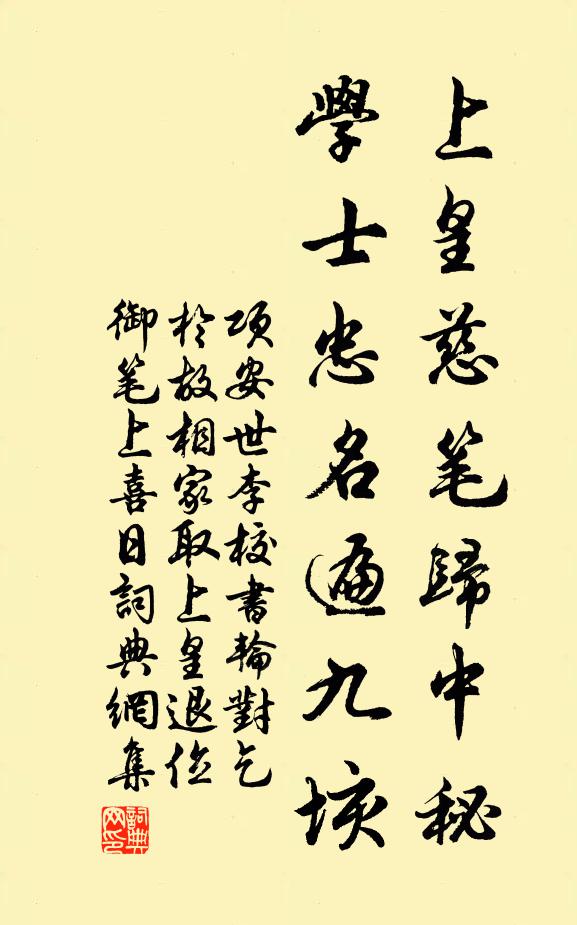 上皇慈笔歸中秘
學士忠名遍九垓
項安世李校書輪對乞
於故相家取上皇退位
御笔上喜日詞典網集
詞典网印